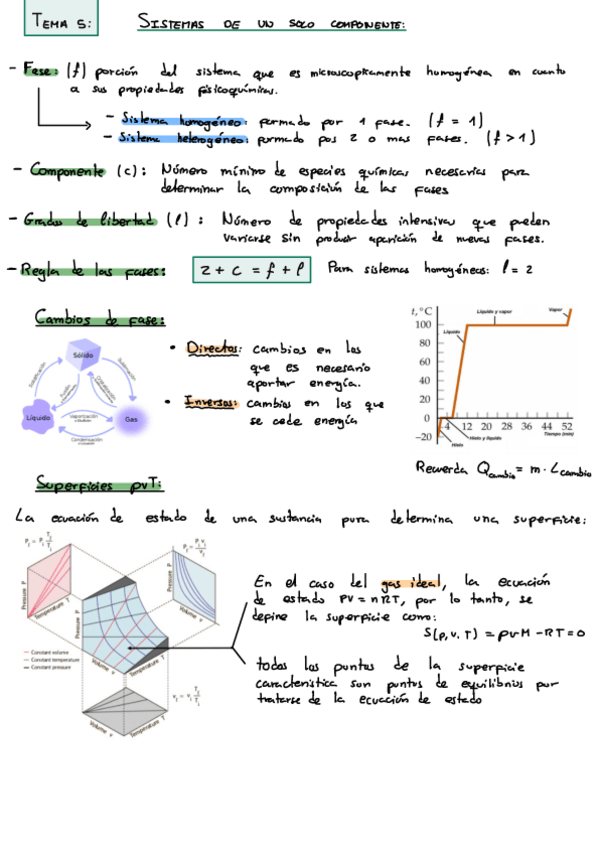 TEMA 5:
SISTEMAS DE UN SOLO COMPONENTE:
- Fase: (f) porción del sistema que es microscopicamente homogénea en cuanto
a sus propiedades fisicoquímicas.
- Sistema homogéneo: formado por 1 fase. (f = 1)
- Sistema heterogéneo: formado pos 2 o mas fases. (f > 1)
- Componente (c): Número mínimo de especies químicas necesarias para
determinar la composición de las fases
- Grados de libertad (l): Número de propiedades intensivas que pueden
variarse sin producir aparición de nuevas fases.
- Regla de las fases: 2 + c = f + l Para sistemas homogéneos: l = 2
Cambios de fase:
Sólido
Líquido
Gas
Solidificación
Fusión
Sublimación
Vaporización
Condensación
• Directos: cambios en los
que es necesario
aportar energía.
• Inversos: cambios en los que
se cede energía
t, °C
Líquido y vapor
Vapor
Líquido
100
80
60
40
20
0
-20
4 12 20 28 36 44 52
Tiempo (min)
Hielo y líquido
Hielo
Recuerda Qcambio = m · Lcambio
Superficies pvT:
La ecuación de estado de una sustancia pura determina una superficie:
Pressure P
Temperature T
Pressure P
Volume v
Pressure P
Volume v
Temperature T
Constant volume
Constant temperature
Constant pressure
Volume v
Temperature T
En el caso del gas ideal, la ecuación
de estado PV = nRT, por lo tanto, se
define la superficie como:
S(p, v, T) = pvM - RT = 0
todos los puntos de la superficie
característica son puntos de equilibrios por
tratarse de la ecuación de estado